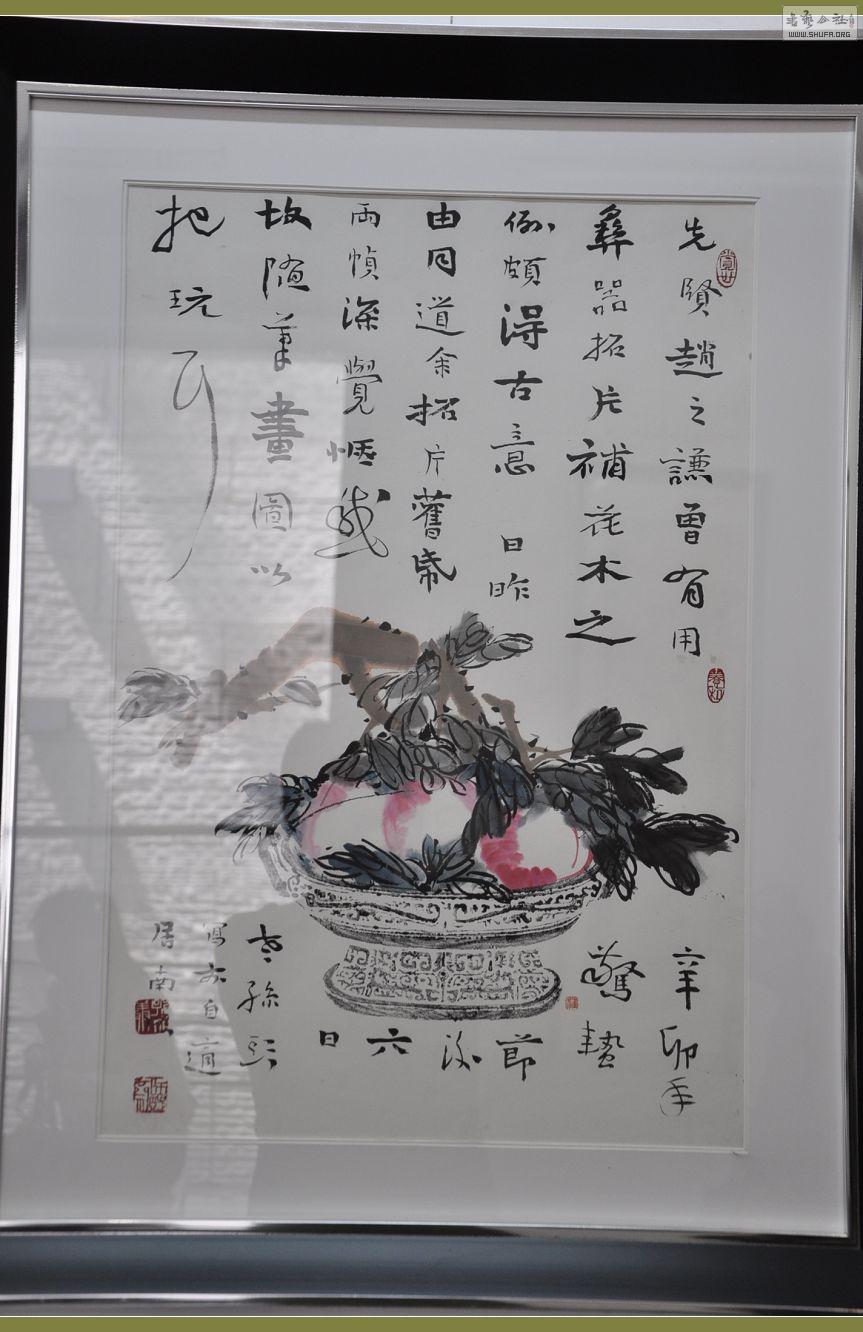 先賢趙之謙曾有用
彝器拓片補花木之
例頗得古意日昨
由同道余拓片舊帋
兩幀深覺愜
故隨筆畫圖以
把玩耳
辛卯年
驚蟄
節
後
六
日
老孫
寫於自適
居南
WWW.SHUFA.ORG